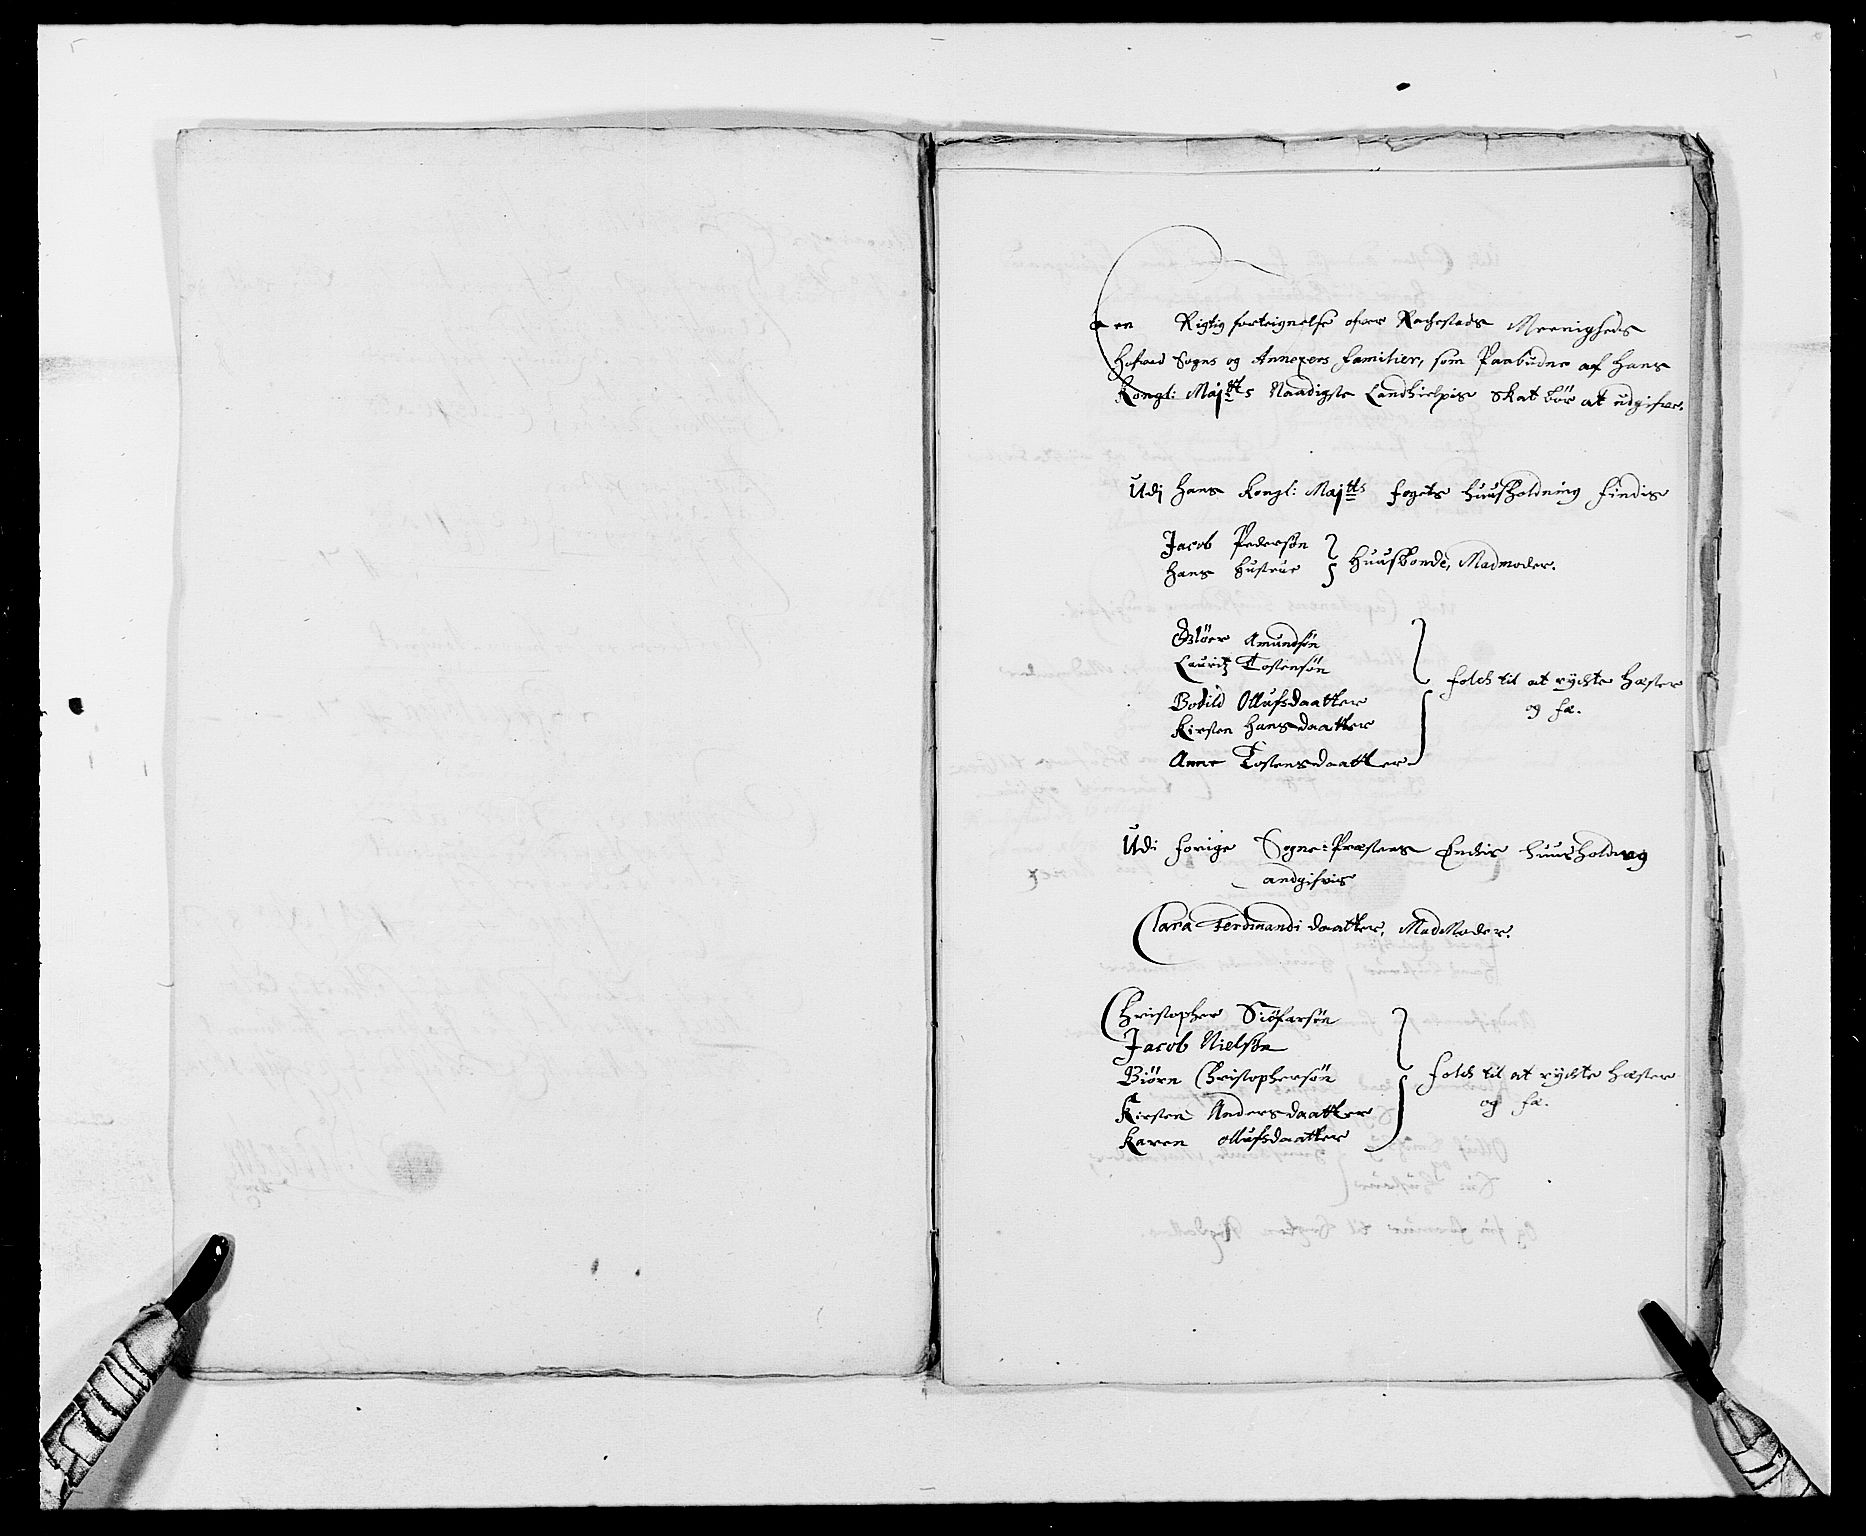 en Rigtig forteignelse ofver Rachestads Meenigheds
Hofved Sogns og Annexers familier, som Paabudne af Hans
Kongl: Majtts Naadigste Landhielpis Skat bör at udgifve.
Udj Hans Kongl: Majtts fogets Huusholdning findis
Jacob Pedersøn
Hans Hustrue
Huusbonde, Madmoder.
Amundsøn
Lauritz Tostensøn
Bodild Ollufsdaatter
Kirsten Hansdaatter
Anne Tostensdaatter
folch til at rychte Hæster
og fæ.
Udi forige Sogne-Præstens Enchis Huusholdning
andgifvis
Clara Ferdinandi daatter, MadModer.
Christopher Siöfarsøn
Jacob Nielsøn
Biörn Christophersøn
Kirsten Andersdaatter
Karen ollufsdaatter
folch til at rychte Hæster
og fæ.